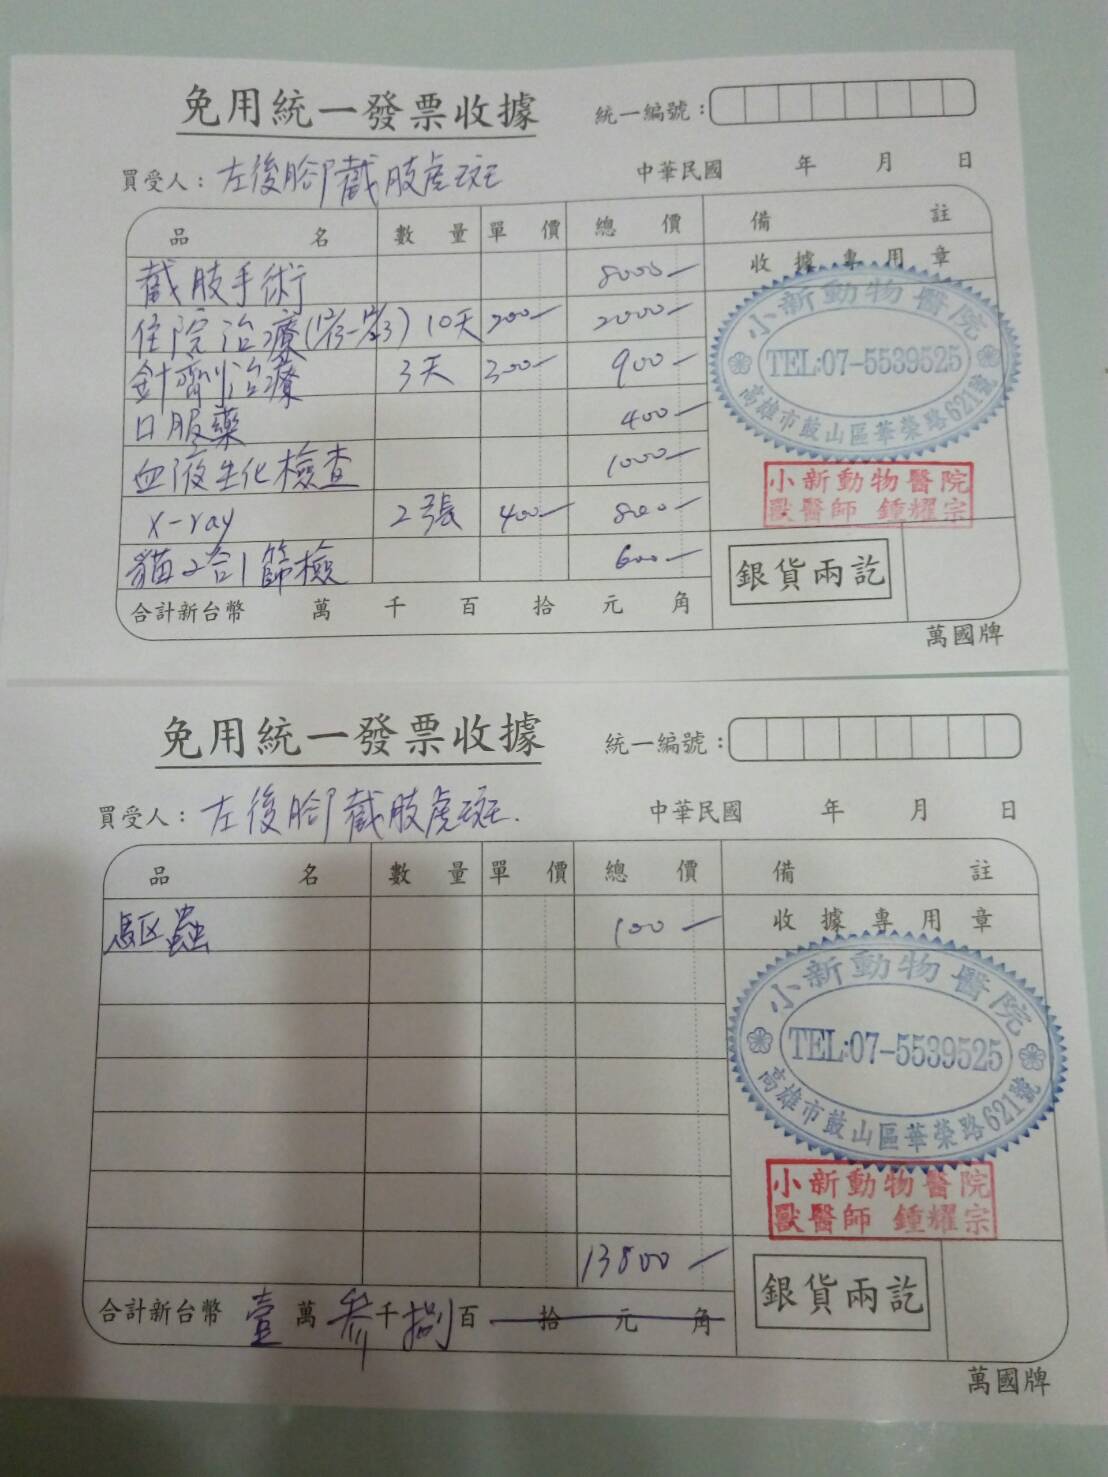 免用統一發票收據
統一編號：
買受人：左後腳截肢虎斑
中華民國 年 月 日
品名 數量 單價 總價 備註
收據專用章
截肢手術 8000-
住院治療(12/3-12/13) 10天 200- 2000-
針劑治療 3天 300- 900-
口服藥 400-
血液生化檢查 1000-
X-ray 2張 400- 800-
貓2合1篩檢 600-
小新動物醫院
TEL:07-5539525
高雄市鼓山區華榮路621號
小新動物醫院
獸醫師 鍾耀宗
銀貨兩訖
合計新台幣 萬 千 百 拾 元 角
萬國牌
免用統一發票收據
統一編號：
買受人：左後腳截肢虎斑.
中華民國 年 月 日
品名 數量 單價 總價 備註
收據專用章
驅蟲 100-
小新動物醫院
TEL:07-5539525
高雄市鼓山區華榮路621號
小新動物醫院
獸醫師 鍾耀宗
13800-
銀貨兩訖
合計新台幣 壹萬參千捌百 拾 元 角
萬國牌